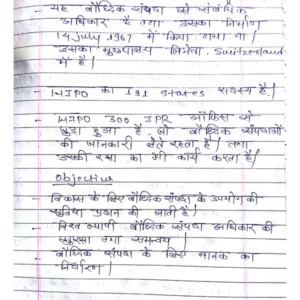 - यह बौध्दिक संपदा से संबंधित
अधिकार है तथा इसका निर्माण
14 July 1967 में किया गया था।
इसका मुख्यालय जिनेवा, Switzerland
में है।
- WIPO का 191 states सदस्य है।
- WIPO 300 IPR ऑफिस से
जुड़ा हुआ है जो बौध्दिक संपदाओं
की जानकारी लेते रहता है। तथा
उसकी रक्षा का भी कार्य करता है।
Objective
- विकास के लिए बौध्दिक संपदा के उपयोग की
सुविधा प्रदान की जाती है।
- विश्व व्यापी बौध्दिक संपदा अधिकार की
सुरक्षा तथा समन्वय।
- बौध्दिक संपदा के लिए मानक का
निर्धारण।